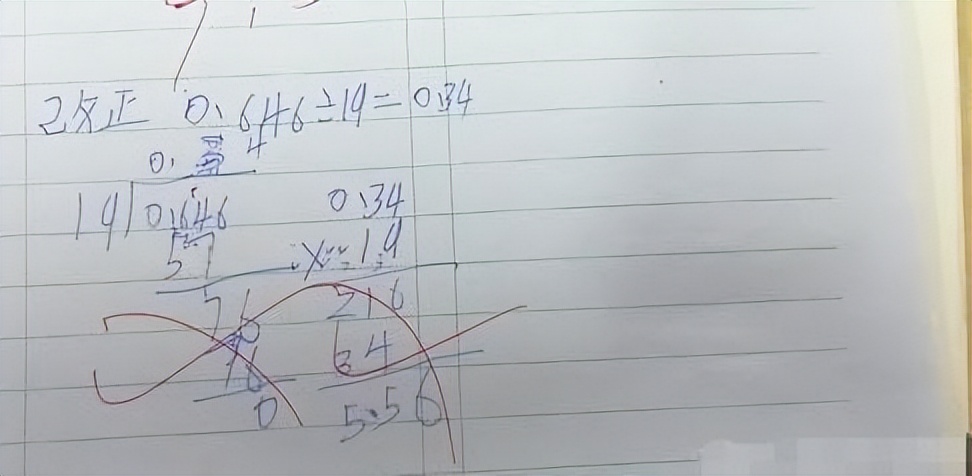 改正 0.646÷19=0.34
0. 4
19 0.646
57
76
76
0
0.34
×1.9
216
64
5.56